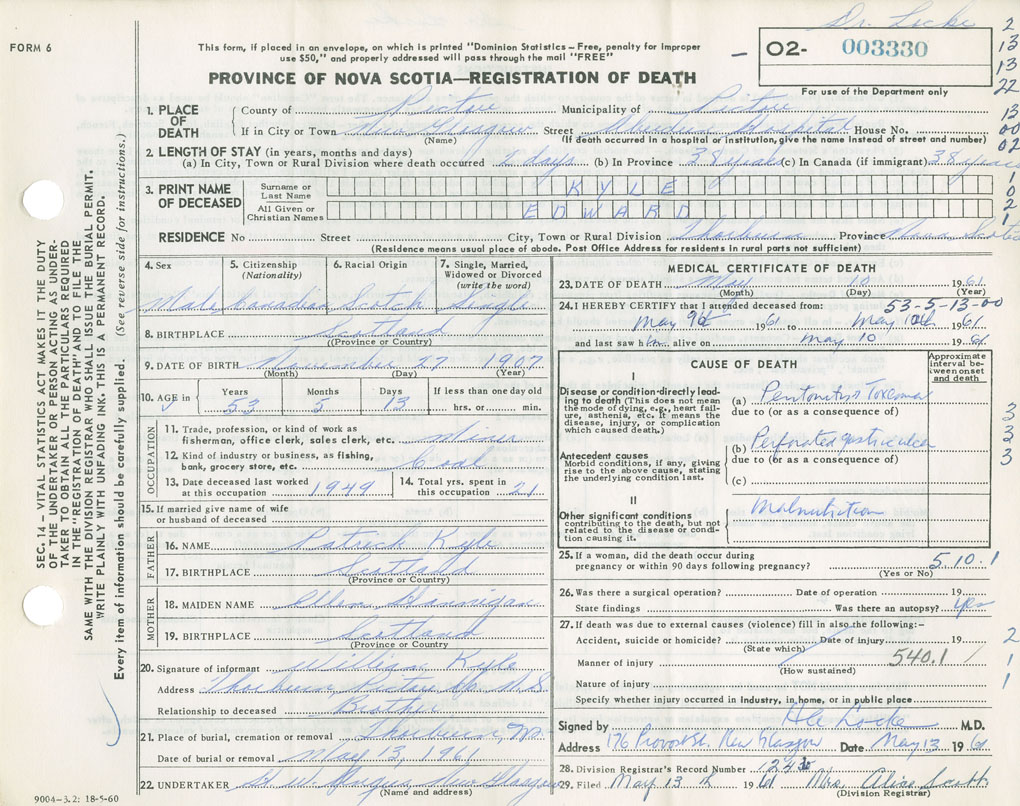 Dr. Locke
FORM 6
This form, if placed in an envelope, on which is printed "Dominion Statistics – Free, penalty for improper
use $50," and properly addressed will pass through the mail "FREE"
O2- 003330
For use of the Department only
PROVINCE OF NOVA SCOTIA—REGISTRATION OF DEATH
1. PLACE OF DEATH
County of Pictou Municipality of Pictou
If in City or Town New Glasgow Street Aberdeen Hospital House No.
(Name) (If death occurred in a hospital or institution, give the name instead of street and number)
2. LENGTH OF STAY (in years, months and days)
(a) In City, Town or Rural Division where death occurred 2 days (b) In Province 38 years (c) In Canada (if immigrant) 38 years
3. PRINT NAME OF DECEASED
Surname or Last Name KYLE
All Given or Christian Names EDWARD
RESIDENCE No Street City, Town or Rural Division Thorburn Province Nova Scotia
(Residence means usual place of abode. Post Office Address for residents in rural parts not sufficient)
4. Sex Male
5. Citizenship (Nationality) Canadian
6. Racial Origin Scotch
7. Single, Married, Widowed or Divorced (write the word) Single
8. BIRTHPLACE Scotland
(Province or Country)
9. DATE OF BIRTH November 27 1907
(Month) (Day) (Year)
10. AGE in Years 53 Months 5 Days 13 If less than one day old hrs. or min.
OCCUPATION
11. Trade, profession, or kind of work as
fisherman, office clerk, sales clerk, etc. Miner
12. Kind of industry or business, as fishing,
bank, grocery store, etc. Coal
13. Date deceased last worked
at this occupation 1949
14. Total yrs. spent in
this occupation 21
15. If married give name of wife
or husband of deceased
FATHER
16. NAME Patrick Kyle
17. BIRTHPLACE Scotland
(Province or Country)
MOTHER
18. MAIDEN NAME Ellen Hannigan
19. BIRTHPLACE Scotland
(Province or Country)
20. Signature of informant William Kyle
Address Thorburn Pictou Co N.S
Relationship to deceased Brother
21. Place of burial, cremation or removal Thorburn, N.S.
Date of burial or removal May 13, 1961
22. UNDERTAKER H. W. Angus New Glasgow
(Name and address)
9004-3.2: 18-5-60
MEDICAL CERTIFICATE OF DEATH
23. DATE OF DEATH May 10 1961
(Month) (Day) (Year)
53-5-13-00
24. I HEREBY CERTIFY that I attended deceased from:
May 9th 1961 to May 10th 1961
and last saw him alive on May 10 1961
CAUSE OF DEATH
Approximate interval between onset and death
I
Disease or condition directly leading to death (This does not mean the mode of dying, e.g., heart failure, asthenia, etc. It means the disease, injury, or complication which caused death.)
(a) Peritonitis Toxemia
due to (or as a consequence of)
Antecedent causes
Morbid conditions, if any, giving rise to the above cause, stating the underlying condition last.
(b) Perforated gastric ulcer
due to (or as a consequence of)
(c)
II
Other significant conditions
contributing to the death, but not related to the disease or condition causing it.
Malnutrition
25. If a woman, did the death occur during
pregnancy or within 90 days following pregnancy?
(Yes or No)
5.10.1
26. Was there a surgical operation? Date of operation 19
State findings Was there an autopsy? yes
27. If death was due to external causes (violence) fill in also the following:-
Accident, suicide or homicide? Date of injury 19
(State which)
Manner of injury 540.1
(How sustained)
Nature of injury
Specify whether injury occurred in industry, in home, or in public place
Signed by M.D.
Address 176 Provost St. New Glasgow Date May 13 1961
28. Division Registrar's Record Number
29. Filed May 13th 1961 Mrs. Aline Scott
(Division Registrar)
SEC. 14 – VITAL STATISTICS ACT MAKES IT THE DUTY
OF THE UNDERTAKER OR PERSON ACTING AS UNDERTAKER TO OBTAIN ALL THE PARTICULARS REQUIRED
IN THE "REGISTRATION OF DEATH" AND TO FILE THE
SAME WITH THE DIVISION REGISTRAR WHO SHALL ISSUE THE BURIAL PERMIT.
WRITE PLAINLY WITH UNFADING INK. THIS IS A PERMANENT RECORD.
Every item of information should be carefully supplied. (See reverse side for instructions.)
2
13
13
22
13
00
02
1
0
2
1
3
3
3
2
1
1